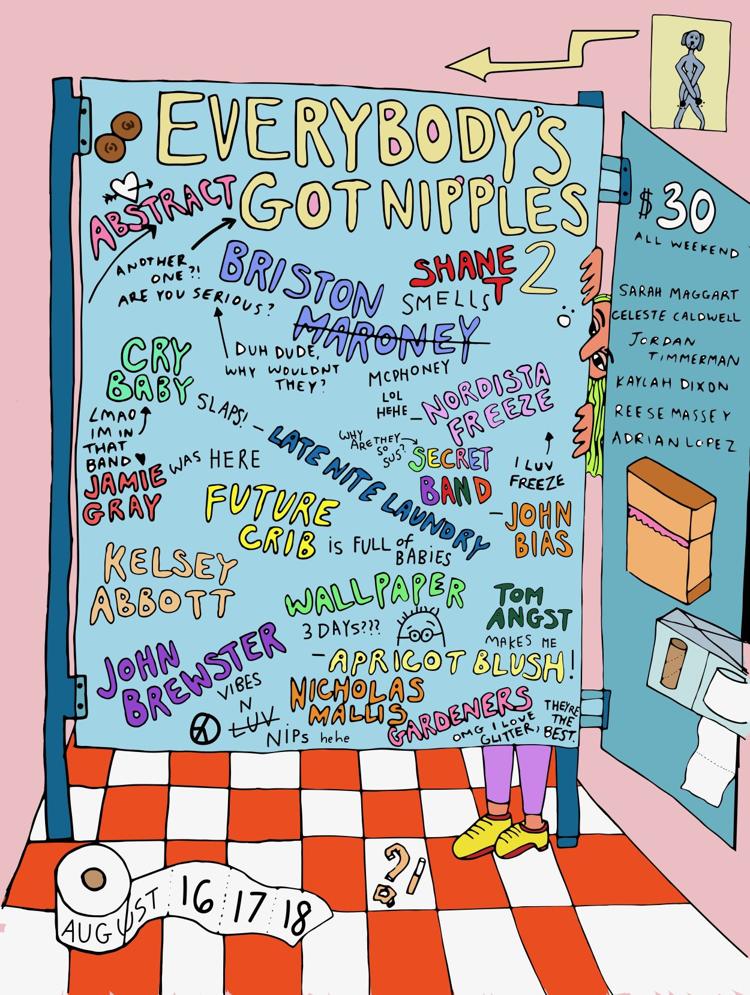 EVERYBODY'S
GOT NIPPLES
2
ABSTRACT
ANOTHER
ONE?!
ARE YOU SERIOUS?
BRISTON
MARONEY
SHANE
T
SMELLS
DUH DUDE,
WHY WOULDNT
THEY?
MCPHONEY
LOL
HEHE
CRY
BABY
LMAO
IM IN
THAT
BAND
SLAPS! -
LATE NITE LAUNDRY
- NORDISTA
FREEZE
I LUV
FREEZE
WHY
ARE THEY
SO
SUS?
SECRET
BAND
JAMIE
GRAY
WAS HERE
FUTURE
CRIB
IS FULL of
BABIES
- JOHN
BIAS
KELSEY
ABBOTT
WALLPAPER
3 DAYS???
TOM
ANGST
MAKES ME
- APRICOT BLUSH!
JOHN
BREWSTER
VIBES
N
LUV
NIPS hehe
NICHOLAS
MALLIS
GARDENERS
OMG I LOVE
GLITTER,
THEY'RE
THE
BEST.
$30
ALL WEEKEND
SARAH MAGGART
CELESTE CALDWELL
JORDAN
TIMMERMAN
KAYLAH DIXON
REESE MASSEY
ADRIAN LOPEZ
AUGUST 16 17 18
?